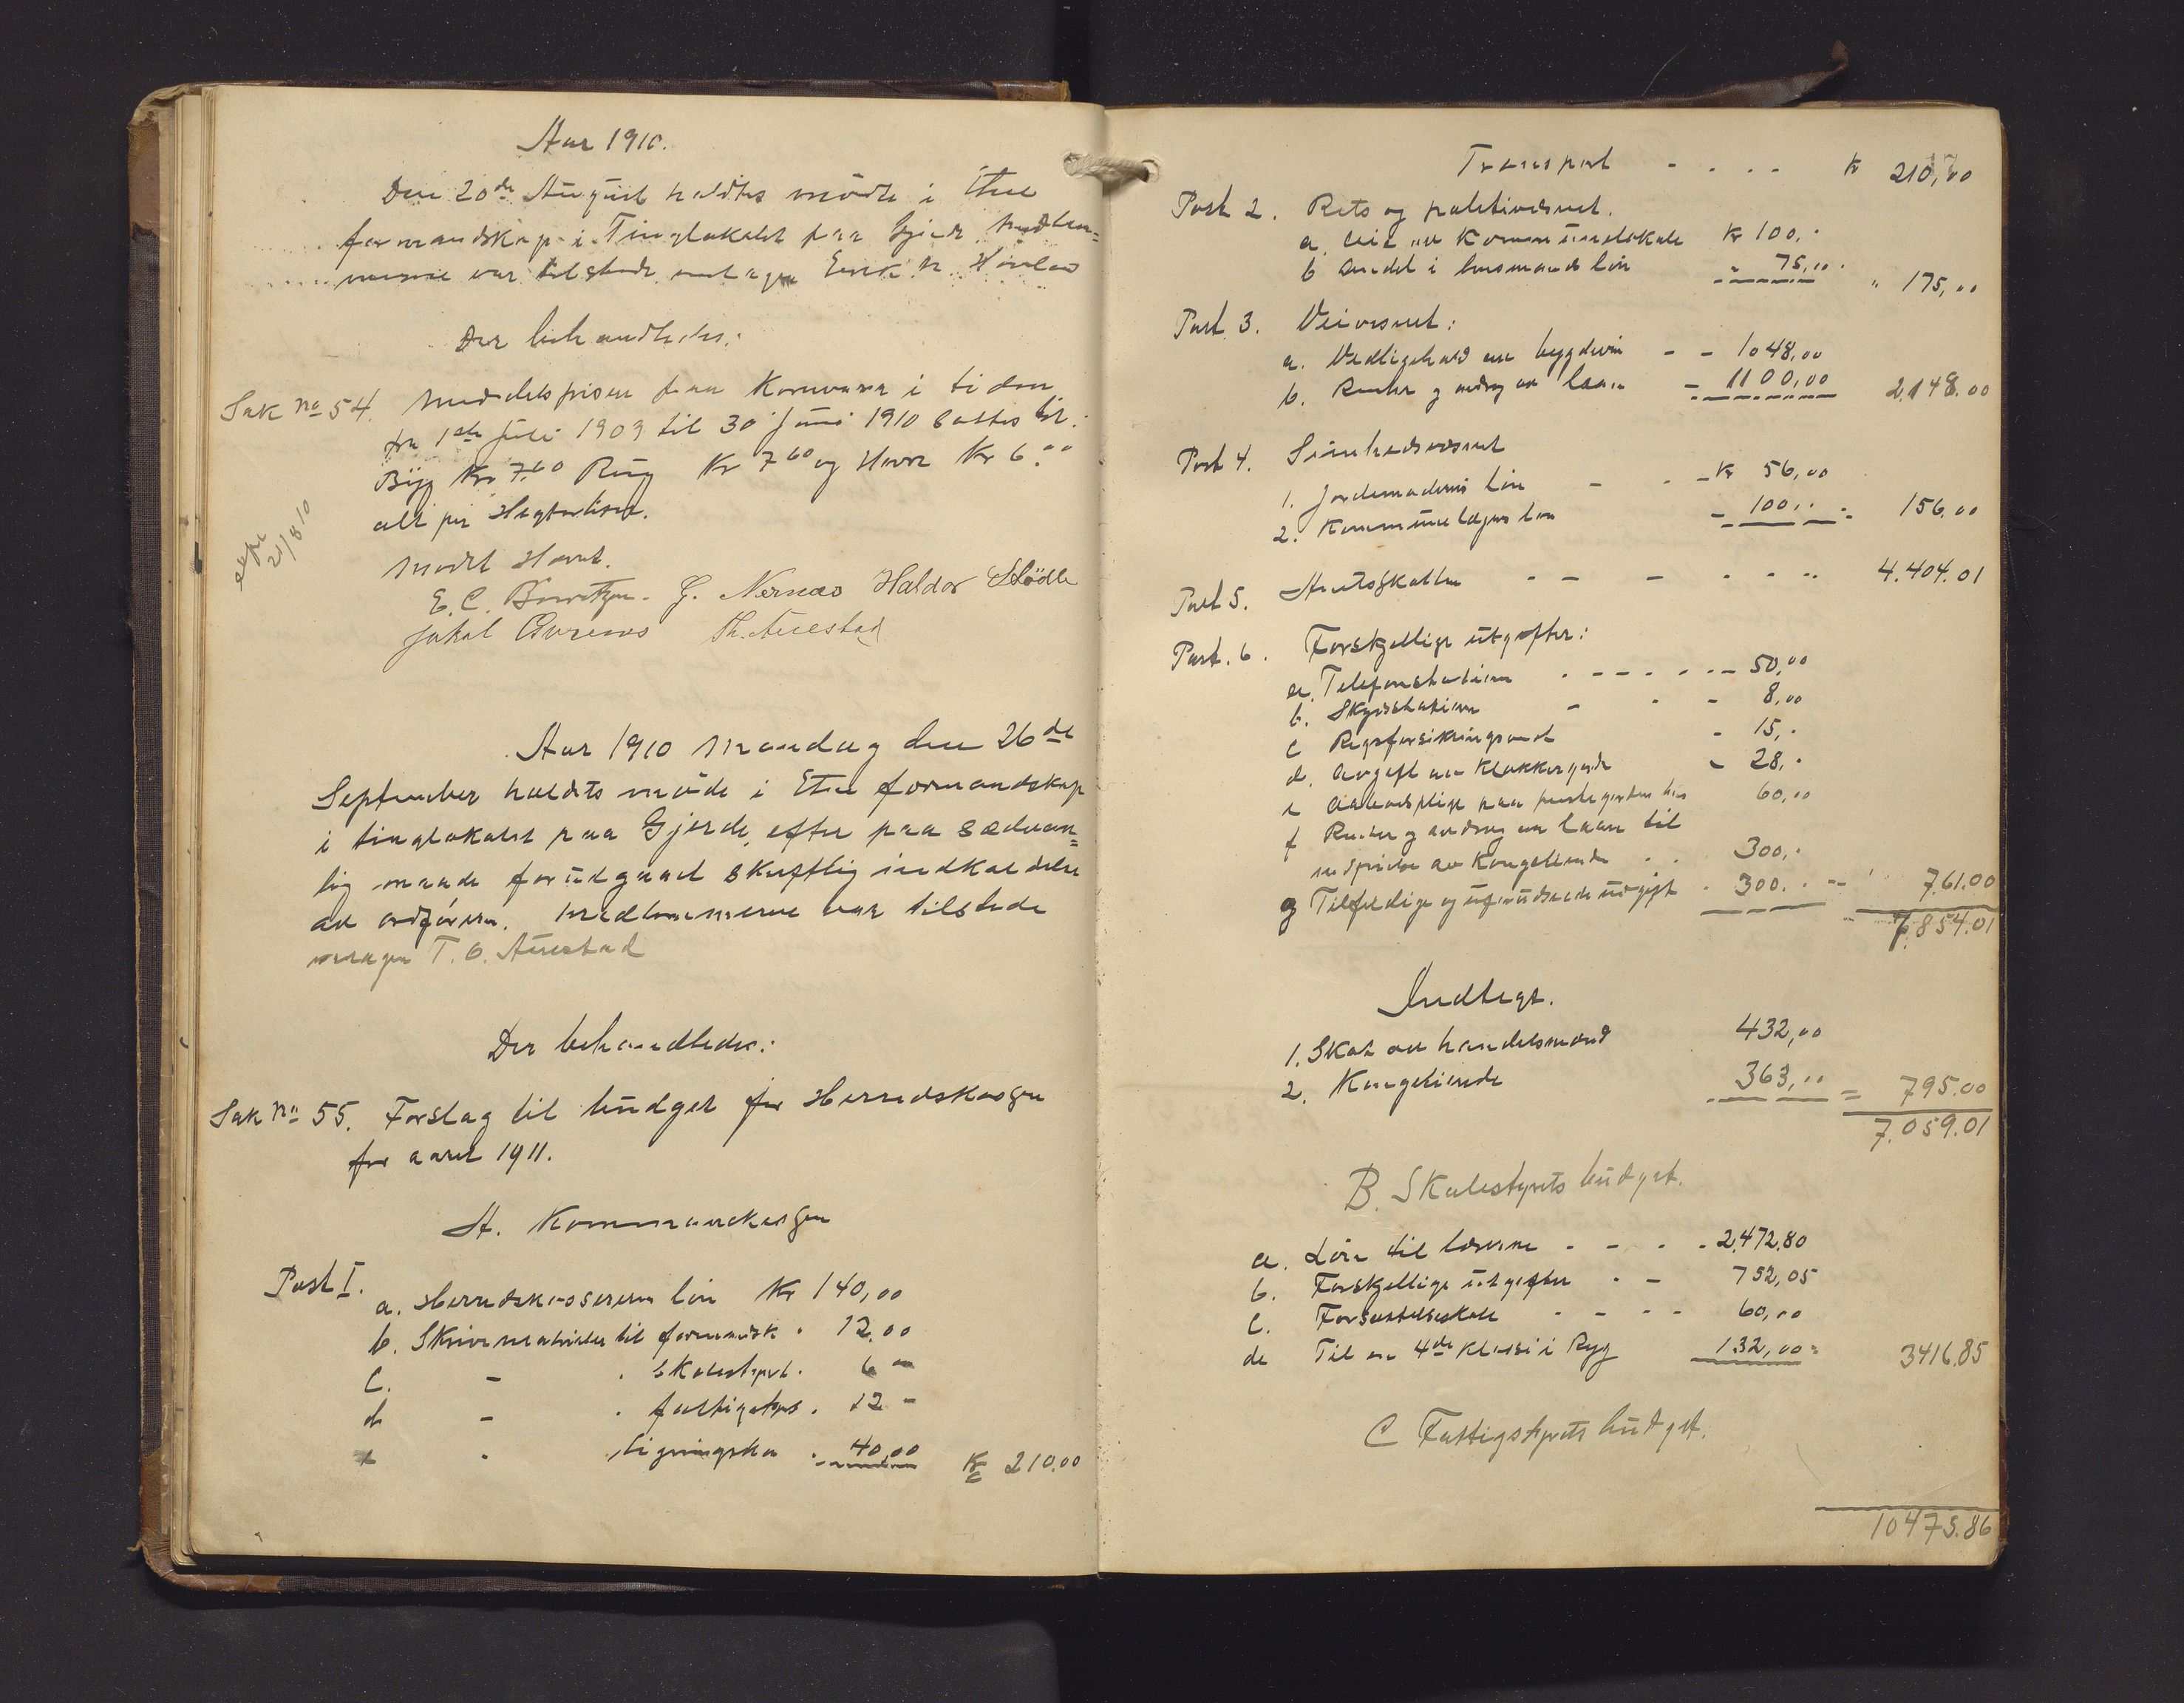 Aar 1910.
Den 20de August holdtes mödte i Etne
formandskap i Tinglokalet paa Gjerde. Medlem=
merne var tilstede undtagen Erik N. Hovland
Der behandledes:
Sak No 54. Middelsprisen paa Kornvarer i tiden
fra 1ste Juli 1909 til 30 Juni 1910 sattes til:
Byg Kr. 7.60 Rug Kr 7 60 og Havre Kr 6.00
alt per Hektoliter.
exp. 21/8 10
Mödet Hevet.
E. C. Börretzen. J. Nernæs Haldor Stödle
Jakob Grrinde Th. Auestad
Aar 1910 Mandag den 26de
September holdtes möde i Etne formandskap
i tinglokalet paa Gjerde, efter paa sædvan=
lig maade forutgaaet skriftlig indkaldelse
av ordföreren. Medlemmerne var tilstede
undtagen T. O. Auestad
Der behandledes:
Sak No 55. Forslag til budget for Herredskassen
for aaret 1911.
A. Kommunekassen
Post I.
a. Herredskassererens lön Kr 140,00
b. Skrivematerialer til formandsk. " 12.00
c. - " Skolestyret " 6 -
d - " fattigstyret " 12 -
e " ligningskom. " 40,00 Kr 210.00
Transport - . . . Kr 210,00
Post 2. Rets og politivæsnet.
a. Leie av Kommunelokale Kr 100,-
b Andel i lensmands lön " 75,00 " 175,00
Post 3. Veivæsnet:
a. Vedligehold av bygdeveie - - 1048,00
b. Renter og avdrag av laan - 1100,00 2.148.00
Post 4. Sundhedsvæsnet
1. Jordemoderens lön - - - Kr 56,00
2. Kommunelægens lön - 100,00 - 156.00
Post 5. Amtsskatten . - - . . .. 4.404.01
Post. 6. Forskjellige utgifter:
a. Telefonstation . - - - . - - 50,00
b. Skydsstation - . - 8,00
c Riksforsikringsavd - 15,-
d. Avgift av Klokkergaarde - 28,-
e Aabodspligt paa prestegaardens hus 60,00
f Renter og avdrag av laan til
indfrielse av Kongetiende . . 300,-
g Tilfældige og uforutsede utgift . 300. - - 761.00
7.854.01
Indtegt.
1. Skat av handelsmænd 432,00
2. Kongetiende 363,00 = 795.00
7.059.01
B. Skolestyrets budget.
a. Lön til lærerne . - . . 2.472.80
b. Forskjellige utgifter . - 752,05
c. Forsættelseskole - - - - 60,00
d Til en 4de Klasse i Ryg 132,00 = 3416.85
C Fattigstyrets budget.
10475.86